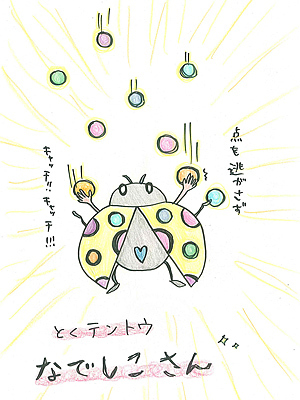 点を逃がさず
キャッチ!!キャッチ!!!
とくテントウ
なでしこさん